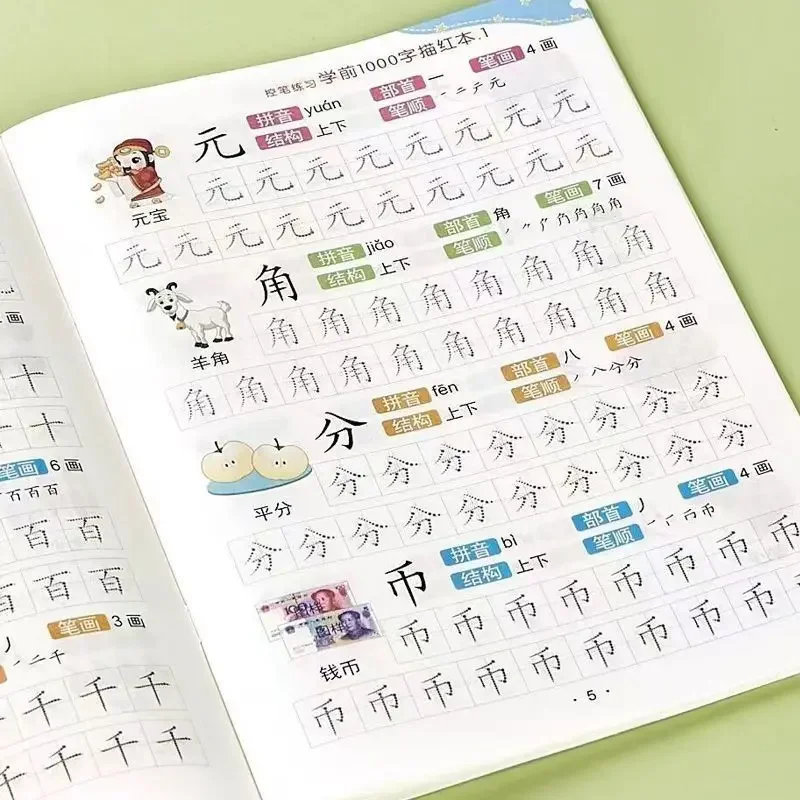 控笔练习 学前1000字描红本.1
元 拼音 yuán 部首 一 笔画 4 画
结构 上下 笔顺 一 二 テ 元
元 元 元 元 元 元 元 元
元宝
元 元 元 元 元 元 元 元 元
角 拼音 jiǎo 部首 角 笔画 7 画
结构 上下 笔顺
角 角 角 角 角 角 角 角
羊角
角 角 角 角 角 角 角 角 角
分 拼音 fēn 部首 八 笔画 4 画
结构 上下 笔顺 丿 八 分 分
分 分 分 分 分 分 分 分
平分
分 分 分 分 分 分 分 分 分
币 拼音 bì 部首 丿 笔画 4 画
结构 上下 笔顺 一 厂 币 币
图样
图样
币 币 币 币 币 币 币 币
钱币
币 币 币 币 币 币 币 币 币
·5·
画
十
十
笔画 6 画
百 百
百 百
丿 笔画 3 画
一 二 千
千 千 千
千 千 千 千